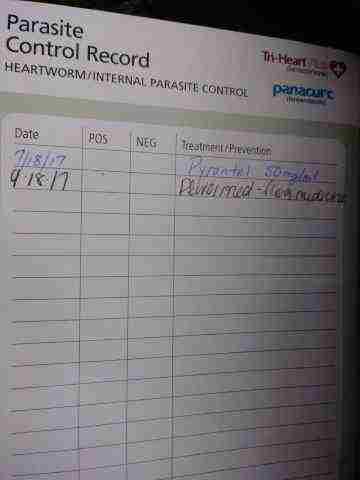 Parasite
Control Record
HEARTWORM/INTERNAL PARASITE CONTROL
Tri-Heart Plus
(ivermectin/pyrantel)
panacurc
(fenbendazole)
Date POS NEG Treatment/Prevention
7/18/17 Pyrantel 50mg/ml
9-18-17 Dewormed - flea medicine